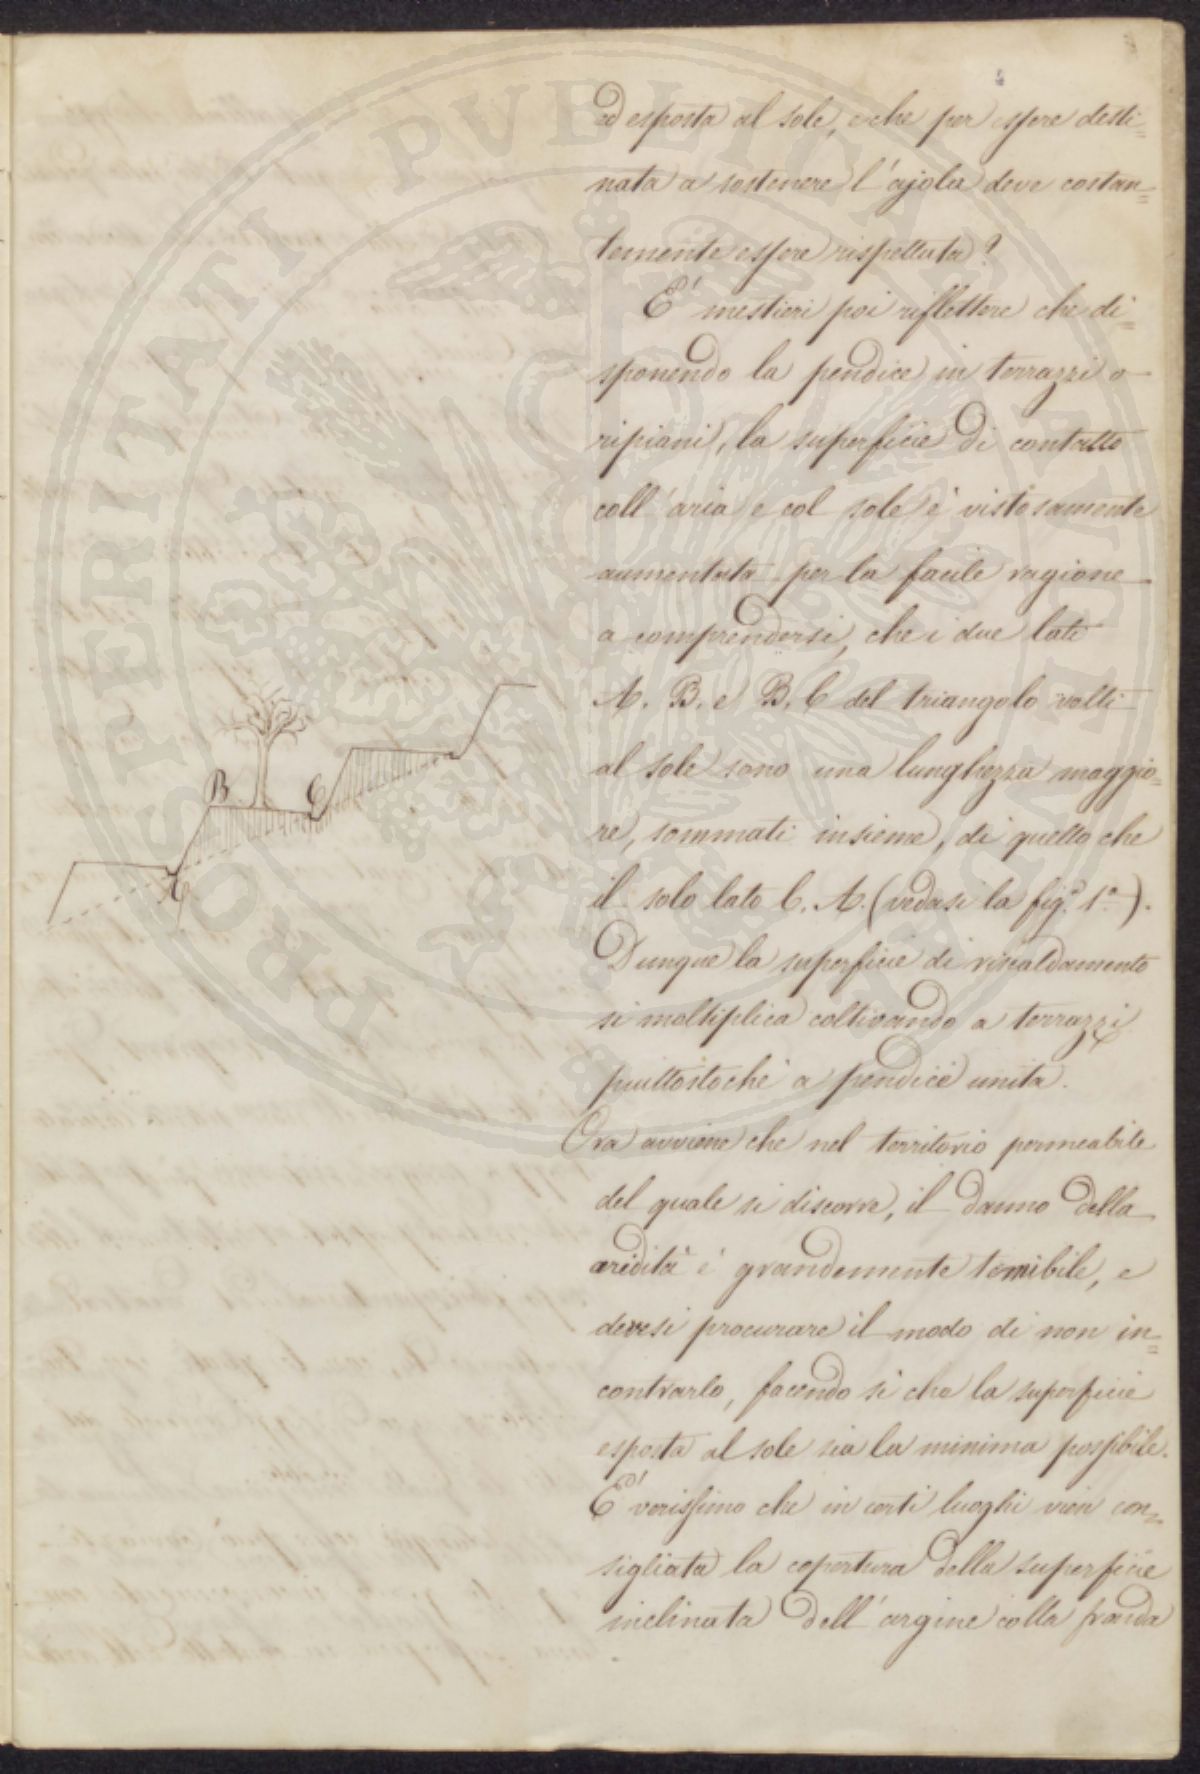 ed esposta al sole, e che per essere desti=
nata a sostenere l'ajola deve costan=
temente essere rispettata?
E' mestieri poi riflettere che di=
sponendo la pendice in terrazzi o
ripiani, la superficie di contatto
coll'aria e col sole è vistosamente
aumentata per la facile ragione
a comprendersi, che i due lati
A. B. e B. C del triangolo volti
al sole sono una lunghezza maggio=
re, sommati insieme, di quello che
il solo lato C. A. (vedasi la fig.ª 1.ª).
Dunque la superficie di riscaldamento
si moltiplica coltivando a terrazzi
piuttostochè a pendice unita.
Ora avviene che nel territorio permeabile
del quale si discorre, il danno della
aridità è grandemente temibile, e
devesi procurare il modo di non in=
contrarlo, facendo sì che la superficie
esposta al sole sia la minima possibile.
E' verissimo che in certi luoghi vien con=
sigliata la copertura della superficie
inclinata dell'argine colla fronda
B.
C
A
PROSPERITATI PUBLICAE AUGENDAE